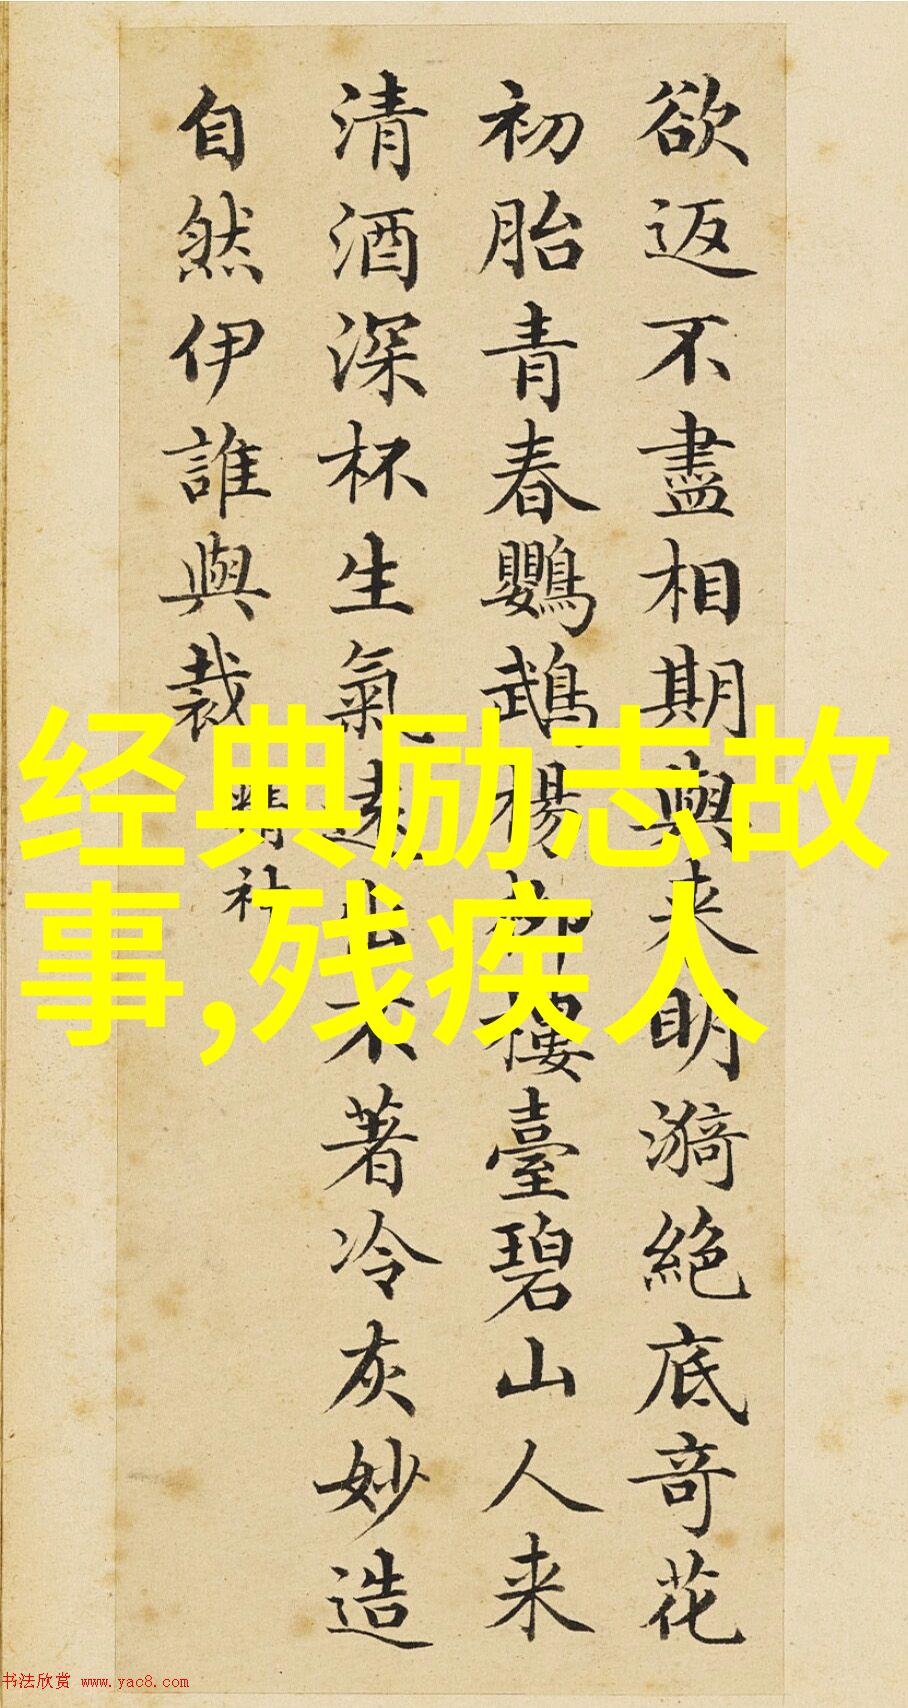 欲返不盡相期與来明漪絕底奇花
初胎青春鸚鵡楊柳樓臺碧山人来
清酒深杯生氣遠出不著冷灰妙造
自然伊誰與裁
社
经典励志故
事,残疾人
书法欣赏 www.yac8.com